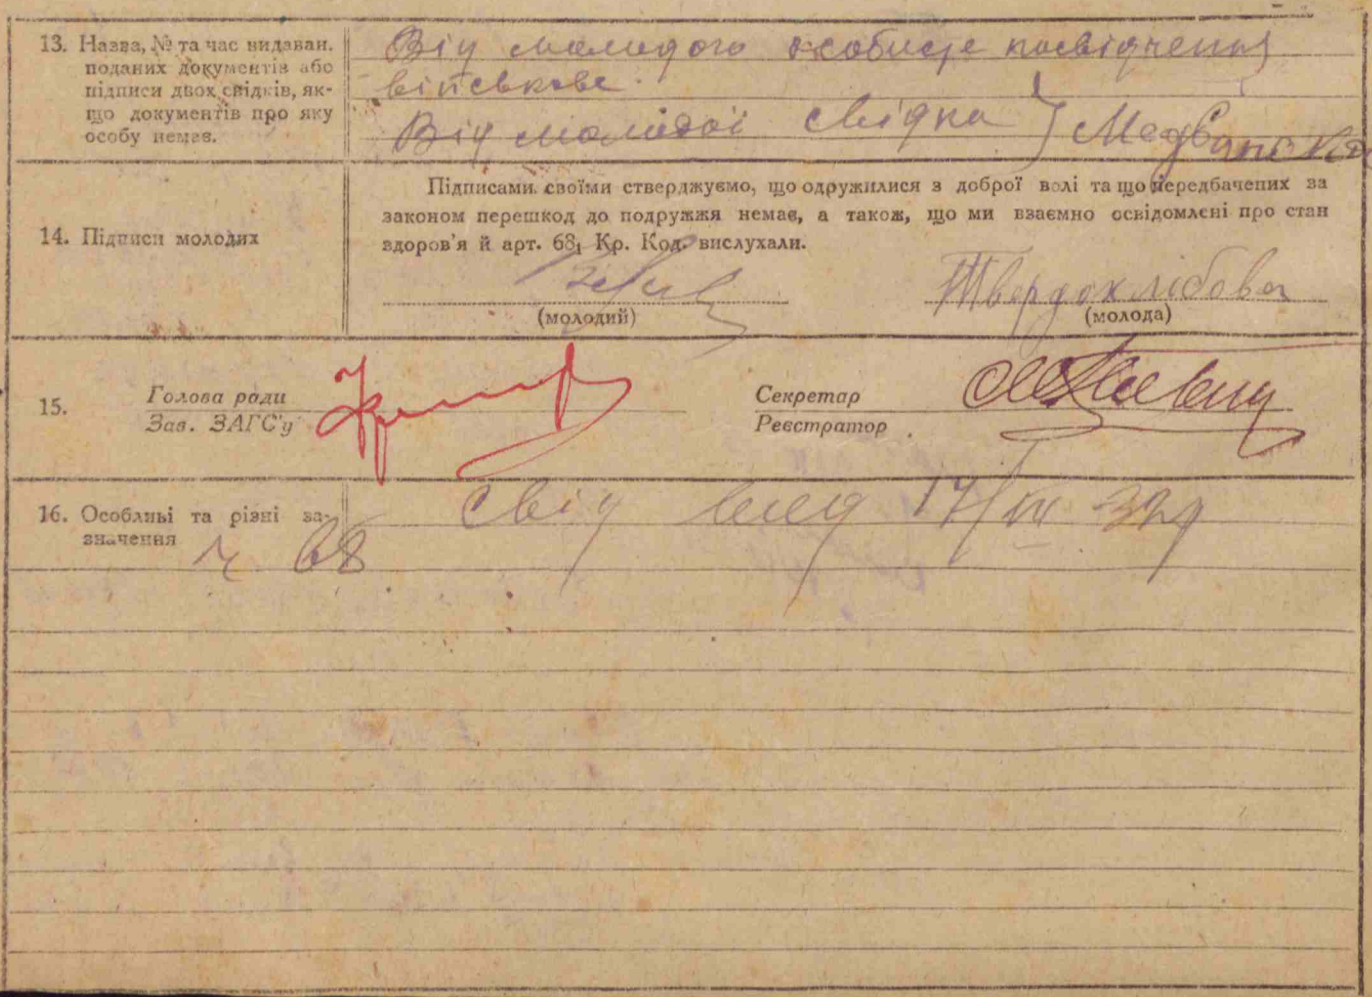 13. Назва, № та час видаван. поданих документів або підписи двох свідків, як-що документів про яку особу немає.
Від молодого особисте посвідчення
військове.
Від молодої свідки
14. Підписи молодих
Підписами своїми стверджуємо, що одружилися з доброї волі та що передбачених за
законом перешкод до подружжя немає, а також, що ми взаємно освідомлені про стан
здоров'я й арт. 68₁ Кр. Код. вислухали.
Твердохлібова
(молодий) (молода)
15. Голова ради
Зав. ЗАГС'у
Секретар
Реєстратор
16. Особливі та різні за-
значення
ч 68
Свід вид 17/III 32р